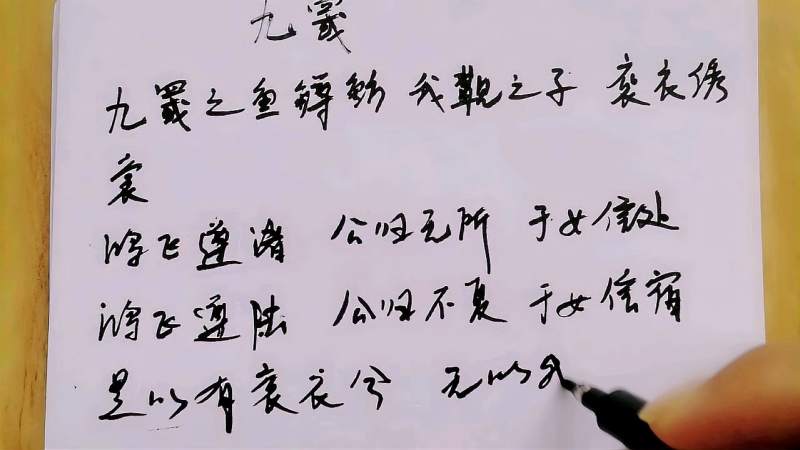 九罭
九罭之鱼鳟鲂 我觏之子 衮衣绣
裳
鸿飞遵渚 公归无所 于女信处
鸿飞遵陆 公归不复 于女信宿
是以有衮衣兮 无以